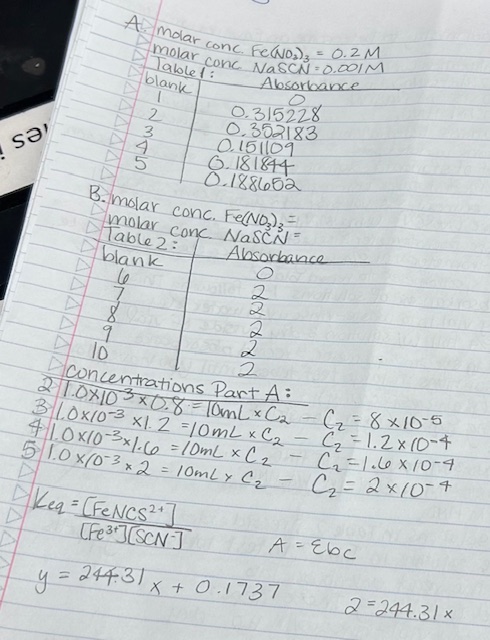 A. molar conc. Fe(NO₃)₃ = 0.2 M
molar conc NaSCN = 0.001M
Table 1:
blank Absorbance
1 0
2 0.315228
3 0.352183
4 0.151109
5 0.181844
0.188652
B. molar conc. Fe(NO₃)₃ =
molar conc NaSCN =
Table 2:
blank Absorbance
6 0
7 2
8 2
9 2
10 2
2
Concentrations Part A:
2 1.0x10⁻³ x 0.8 = 10mL x C₂ - C₂ = 8 x 10⁻⁵
3 1.0x10⁻³ x 1.2 = 10mL x C₂ - C₂ = 1.2 x 10⁻⁴
4 1.0x10⁻³ x 1.6 = 10mL x C₂ - C₂ = 1.6 x 10⁻⁴
5 1.0x10⁻³ x 2 = 10mL x C₂ - C₂ = 2 x 10⁻⁴
Keq = [FeNCS²⁺]
[Fe³⁺][SCN⁻]
A = εbc
y = 244.31 x + 0.1737
2 = 244.31 x